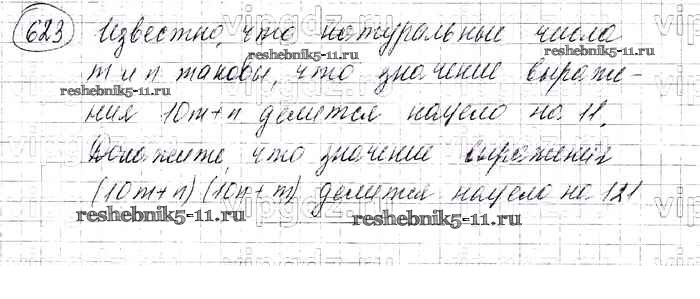 623 Известно, что натуральные числа
reshebnik5-11.ru reshebnik5-11.ru
m и n таковы, что значение выраже-
reshebnik5-11.ru
ния 10m+n делится нацело на 11.
Докажите, что значение выражения
(10m+n)(10n+m) делится нацело на 121
reshebnik5-11.ru reshebnik5-11.ru